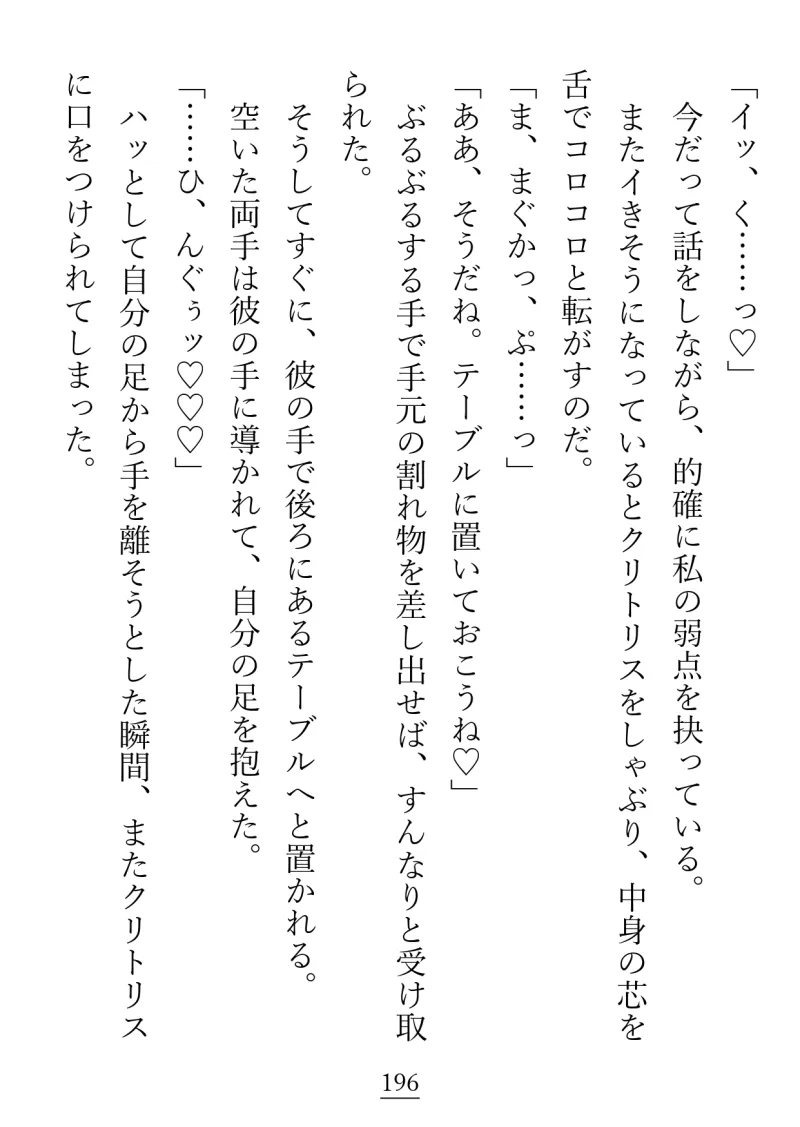 「イッ、く……っ♡」
　今だって話をしながら、的確に私の弱点を抉っている。
　またイきそうになっているとクリトリスをしゃぶり、中身の芯を
舌でコロコロと転がすのだ。
「ま、まぐかっ、ぷ……っ」
「ああ、そうだね。テーブルに置いておこうね♡」
　ぶるぶるする手で手元の割れ物を差し出せば、すんなりと受け取
られた。
　そうしてすぐに、彼の手で後ろにあるテーブルへと置かれる。
　空いた両手は彼の手に導かれて、自分の足を抱えた。
「……ひ、んぐぅッ♡♡♡」
　ハッとして自分の足から手を離そうとした瞬間、またクリトリス
に口をつけられてしまった。
196